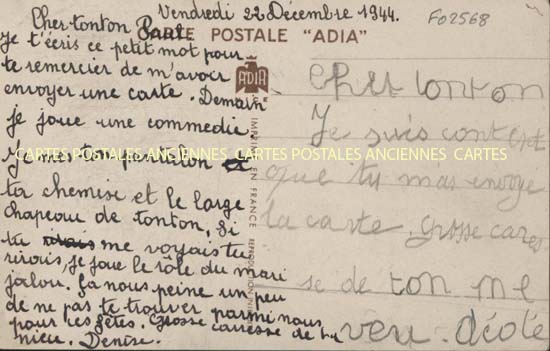 Vendredi 22 Décembre 1944.
FO2568
CARTE POSTALE "ADIA"
ADIA
IMPRIMÉ EN FRANCE
Cher tonton Paul
Je t'écris ce petit mot pour
te remercier de m'avoir
envoyer une carte. Demain
je joue une commedie.
Je mes ton pantalon et
ta chemise et le large
chapeau de tonton, si
tu me voyais tu
rirais, je joue le rôle du mari
jaloux. Ça nous peine un peu
de ne pas te trouver parmi nous
pour ces fêtes. Grosse caresse de ta
nièce. Denise.
Cher tonton
Je suis content
que tu mas envoyé
la carte. Grosse cares
se de ton ne
veu. dédé
CARTES POSTALES ANCIENNES CARTES POSTALES ANCIENNES CARTES